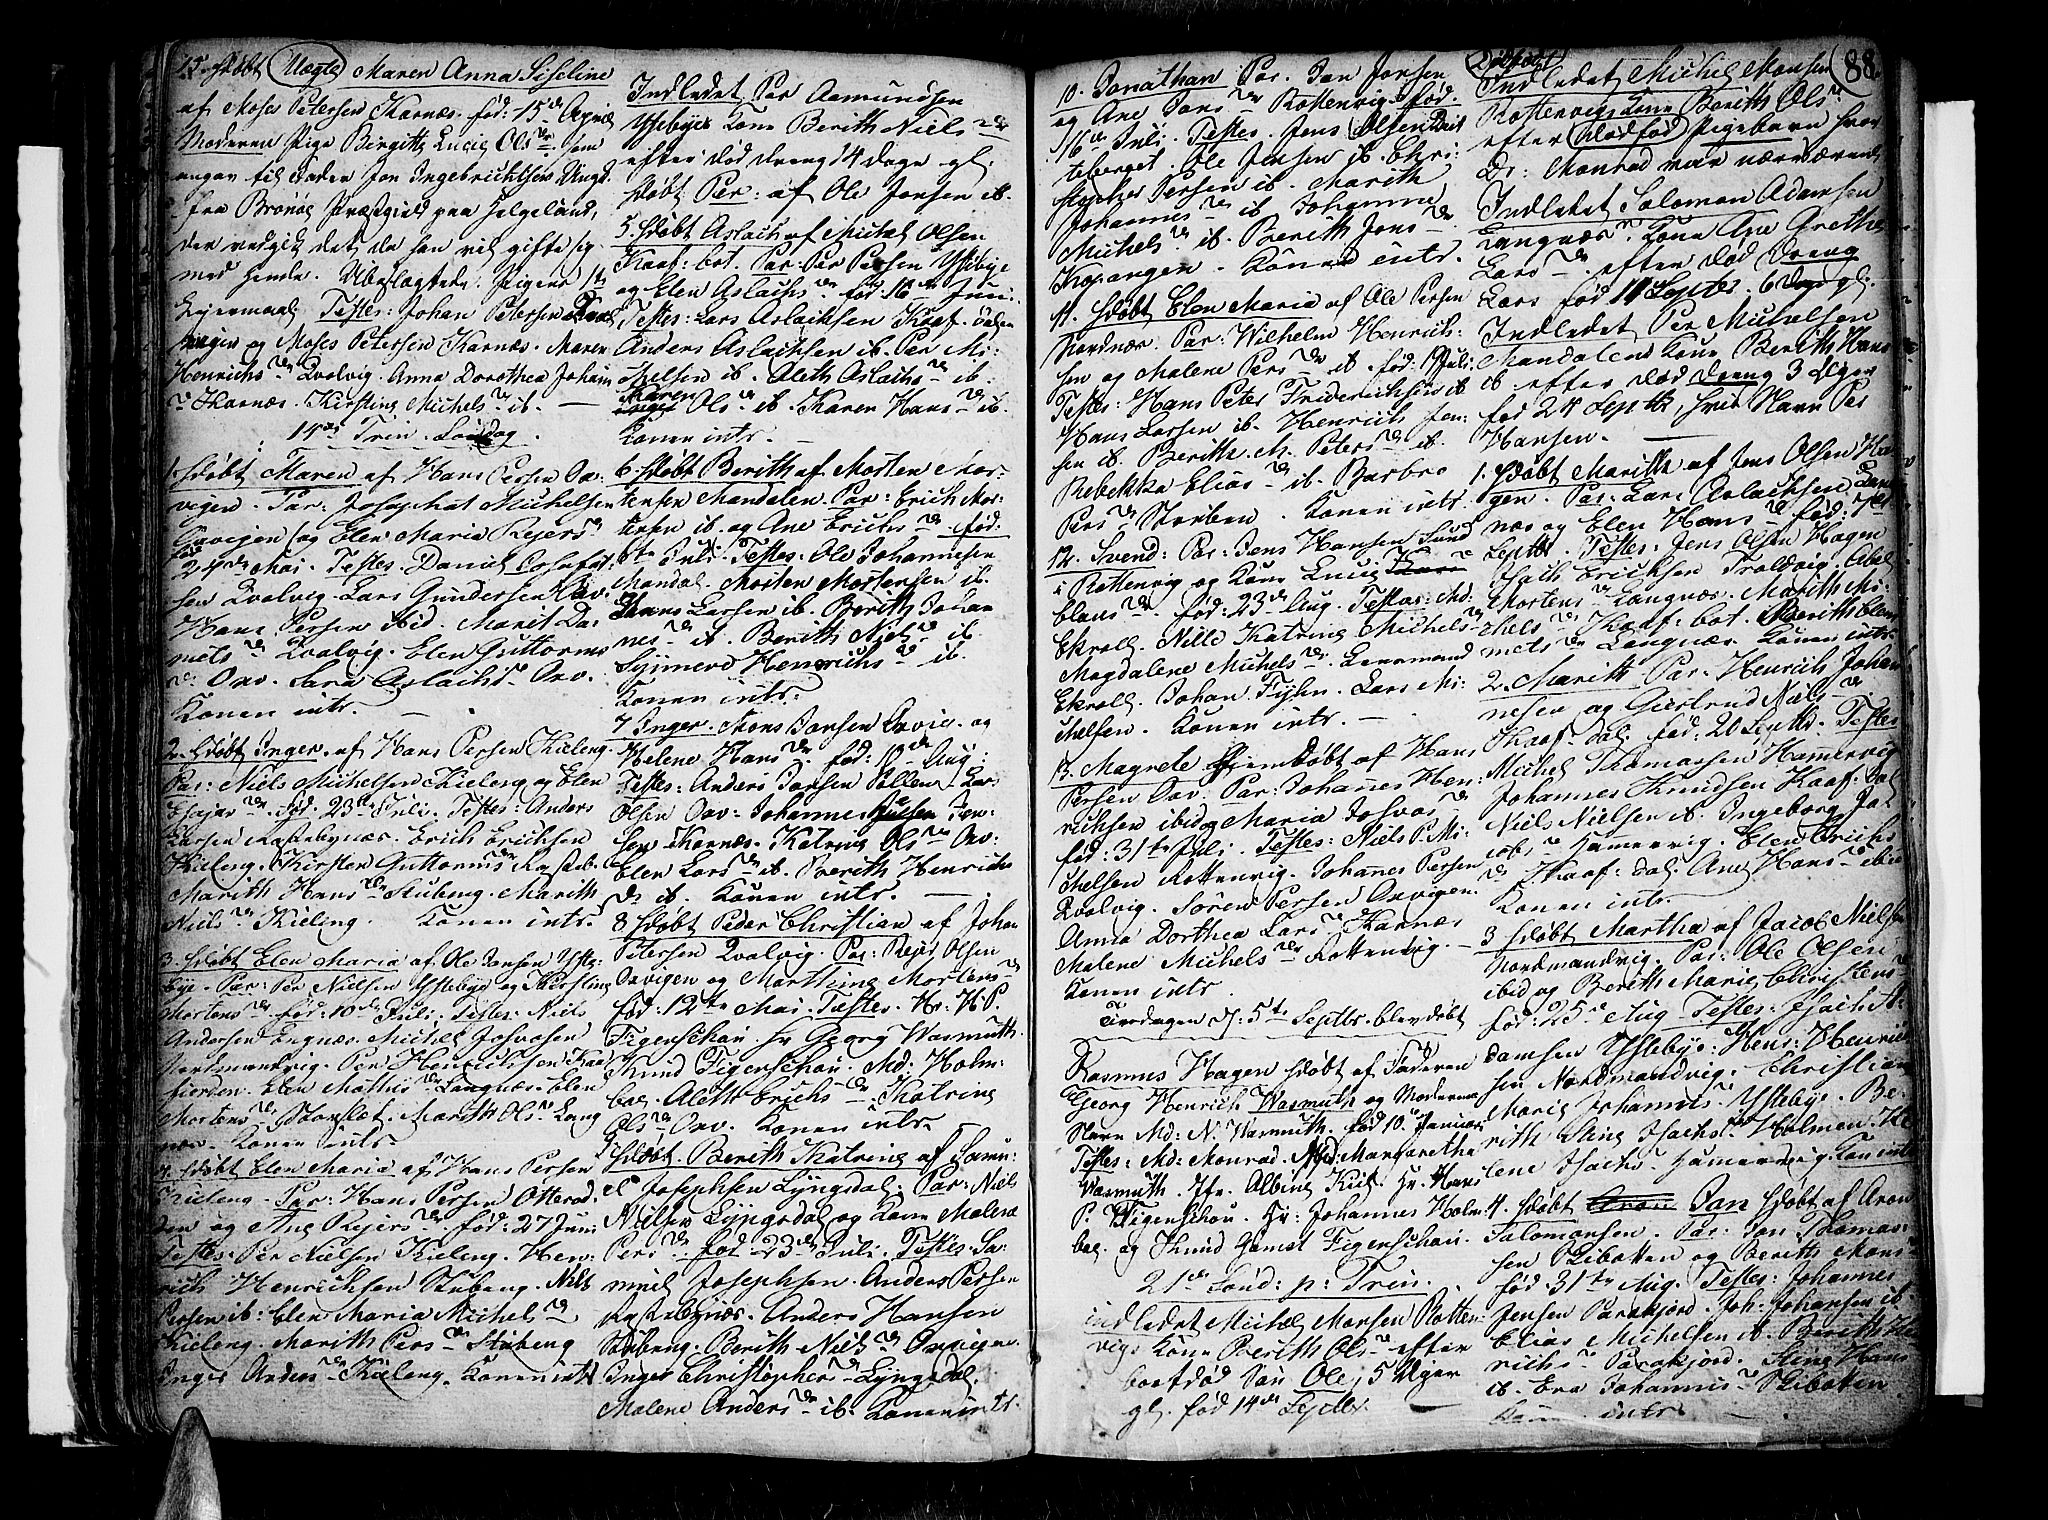 15. døbt Uægte Maren Anna Siseline
af Moses Petersen Karnæs. fød: 15de April
Moderen Pige Birgitte Lucie Ols dr. som
angav til Fader Jon Ingebrichtsen Ungk.
fra Brønøe Præstgield paa Helgeland,
der vedgik det, da han vil gifte sig
med hende. Ubeslægtede. Pigens 1te
Leiermaal. Testes: Johan Petersen
og Moses Petersen Karnæs. Maren
Henrichs dr Qvalvig. Anna Dorothea Johan
dr Karnæs. Kirstine Michels dr ib.
Trin. Søndag.
1. døbt Maren af Hans Persen Ox-
vigen. Par: Josephat Michelsen
Oxvigen og Elen Maria Rejers dr
fød 24de Mai. Testes. Daniel Josefat-
sen Qvalvig. Lars Gundersen Oxv.
Hans Persen ibid. Marit Da-
niels dr Qvalvig. Elen Guttorms
dr Oxv. Sara Aslachs dr Oxv.
Konen intr.
2. døbt Inger. af Hans Persen Kieleng.
Par: Niels Michelsen Kieleng og Elen
Esajæ dr. fød. 23de Juli. Testes: Anders
Larsen Rastebynæs. Erich Erichsen
Kieleng. Kirsten Guttorms dr Rasteb.
Marith Hans dr Stubeng. Marith
Niels dr Kieleng. Konen intr.
3. døbt Elen Maria af Ole Jansen Ytte-
bye. Par: Per Nielsen Yttebye og Kirstine
Mortens dr. fød: 10de Juli. Testes: Niels
Andersen Engnæs. Michel Josvasen
Nordmandvig. Per Henrichsen Kaa-
fiorden. Elen Mathis dr Langnæs. Elen
Mortens dr. Marith Ols dr Lang
næs. Konen intr.
4. døbt Elen Maria af Hans Persen
Kieleng. Par: Hans Persen Otterad-
len og Ane Rejers dr. fød: 27 Juni
Testes: Per Nielsen Kieleng. Hen-
rich Henrichsen Stubeng. Niels
Persen ib: Elen Maria Michels dr
Kieleng. Marith Pers dr Stubeng
Inger Anders dr Kieleng. Konen intr.
Indledet Per Aamundsen
Yttebyes Kone Berith Niels dr
efter død dreng 14 dage gl.
døbt Per: af Ole Jonsen ib.
5. døbt Aslach af Michel Olsen
Kaaf: bot. Par: Per Persen Yttebye
og Elen Aslachs dr. fød 16de Juni
Testes: Lars Aslachsen Kaaf-dalen
Anders Aslachsen ib. Per Mi-
chelsen ib. Aleth Aslachs dr ib:
Maren Ols dr ib. Karen Hans dr ib.
Konen intr.
6. døbt Berith af Morten Mor-
tensen Mandalen. Par: Erich Mor-
tensen ib. og Ane Erichs dr. fød:
Juli. Testes: Ole Johannesen
Mandal. Morten Mortensen ib.
Hans Larsen ib. Berith Johan
nes dr ib. Berith Niels dr ib.
Synnerd Henrichs dr ib.
Konen intr.
7 Inger. Mons Jansen Oxvig. og
Helene Hans dr fød: 10de Aug:
Testes: Anders Jansen Pollen. Lars
Olsen Oxv: Johannes Jen-
sen Karnæs. Katrine Ols dr Oxv.
Elen Lars dr ib. Berith Henrichs
dr ib. Konen intr.
8 døbt Peder Christian af Johan
Petersen Qvalvig. Par: Rejer Olsen
Oxvigen og Marthine Mortens dr
fød: 12te Mai. Testes. Hr. H. P.
Figenschau. Hr Georg Wasmuth.
Knud Figenschau. Md: Holm-
boe. Aleth Erichs dr. Katrine
Ols dr Oxv. Konen intr.
9 døbt. Berith Katrine af Samu-
el Josephsen Lyngsdal. Par: Niels
Nielsen Lyngsdal og Kone Malene
Pers dr fød 23de Juli. Testes. Sa-
muel Josephsen. Anders Persen
Rastebynæs. Anders Hansen
Stubeng. Berith Niels dr Oxvigen.
Inger Christopher dr Lyngsdal.
Malene Anders dr ib. Konen intr.
10. Jonathan Par. Jan Jonsen
og Ane Jans dr Rottenvig. fød:
16de Juli. Testes: Jens Olsen
teberget. Ole Jensen ib. Chri-
stopher Persen ib. Marith
Johannes dr ib. Johanne
Michels dr ib. Berith Jens dr
Kopangen. Konen intr.
11. døbt Elen Maria af Ole Persen
Nordnæs. Par: Wilhelm Henrich-
sen og Malene Pers dr ib. fød: Juli:
Testes: Hans Peter Friderichsen ib
Hans Larsen ib. Henrich Jen-
sen ib. Berithe M. Peters dr ib.
Rebekka Elias dr ib. Barbro
Pers dr Storben. Konen intr.
12. Svend: Par: Jens Hansen Sund
i Rottenvig og Kone Lucie
blaus dr. fød: 23de Aug. Testes: Md.
Ekroll. Nille Katrine Michels dr
Magdalene Michels dr. Leermand
Ekroll. Johan Fyhn. Lars Mi-
chelsen. Konen intr.
13. Magrete hjemdøbt af Hans
Persen Oxv. Par: Johannes Hen-
richsen ibid og Maria Josva dr
fød: 31te Juli. Testes: Niels P. Mi-
chelsen Rottenvig. Johannes Persen
Qvalvig. Søren Persen Oxvigen.
Anna Dorthea Lars dr Karnæs
Malene Michels dr Rottenvig.
Konen intr.
Tirsdagen d: 5te Septbr. blev døbt
Rasmus Hagen døbt af Faderen
Georg Henrich Wasmuth og Moderens
Navn Md: N. Wasmuth. fød 10. Januari
Testes: Md: Monrad. Md: Margaretha
Wasmuth. Jfr. Albine Kiil. Hr. Hans
P. Figenschou. Hr: Johannes Holm-
boe. og Knud Gamst Figenschau.
21de Sønd: p: Trin.
indledet Michel Monsen Rotten-
vigs Kone Berith Ols dr efter
bortdød Søn Ole, 5 Uger
gl. fød 14de Septbr.
Dødfødt
88.
Indledet Michel Monsen
Rottenvigs Kone Berith Ols dr
efter dødfød Pigebarn hvor
Dr: Monrad var nærværende
Indledet Salomon Adamsen
Langnæs' Kone Ane Grethe
Lars dr. efter død dreng
Lars fød 14 Septbr. 6 Dage gl.
Indledet Per Michelsen
Mandalens Kone Berith Hans
ib efter død dreng 3 Uger
fød 24 Septbr, hvis Navn Per
Hansen.
1. døbt Marith af Jens Olsen Ha-
gen. Par: Lars Aslachsen Lang
næs og Elen Hans dr fød: 7de
Septbr. Testes: Jens Olsen Hagen
Isach Ericksen Troldvig. Abel
Mortens dr Langnæs. Marith Mi-
chels dr Kaaf: bot. Berith Clem-
mets dr Langnæs. Konen intr.
2. Marith Par: Henrich Johan-
nesen og Giertrud Niels dr
Kaaf-dal. fød: 20 Septbr. Testes
Michel Thomassen Hammervig
Johannes Knudsen Kaaf: dal
Niels Nielsen ib. Ingeborg Ja-
cobs dr Hamervig. Elen Erichs
dr Kaaf: dal. Ane Hans dr ibid
Konen intr.
3 døbt Martha af Jacob Nielsen
Nordmandvig. Par: Ole Olsen
ibid og Berith Marie Christens dr
fød: 25de Aug. Testes: Isach A-
damsen Yttebye. Hans: Henrich-
sen Nordmandvig. Christian
Marie Johannes dr Yttebye. Be-
rith Stine Isachs dr Holmen. He-
lene Isachs dr Hamervig. Kon intr
4. døbt Jan døbt af Aron
Salomonsen. Par: Jon Thomas-
sen Skibotten og Berith Mons dr
fød 31te Aug. Testes: Johannes
Jensen Parakjord. Joh: Johansen ib.
Elias Michelsen ib. Berith Hen-
richs dr Parakjord. Stine Hans dr
ib. Eva Johannis dr Skibotten
Kone intr.